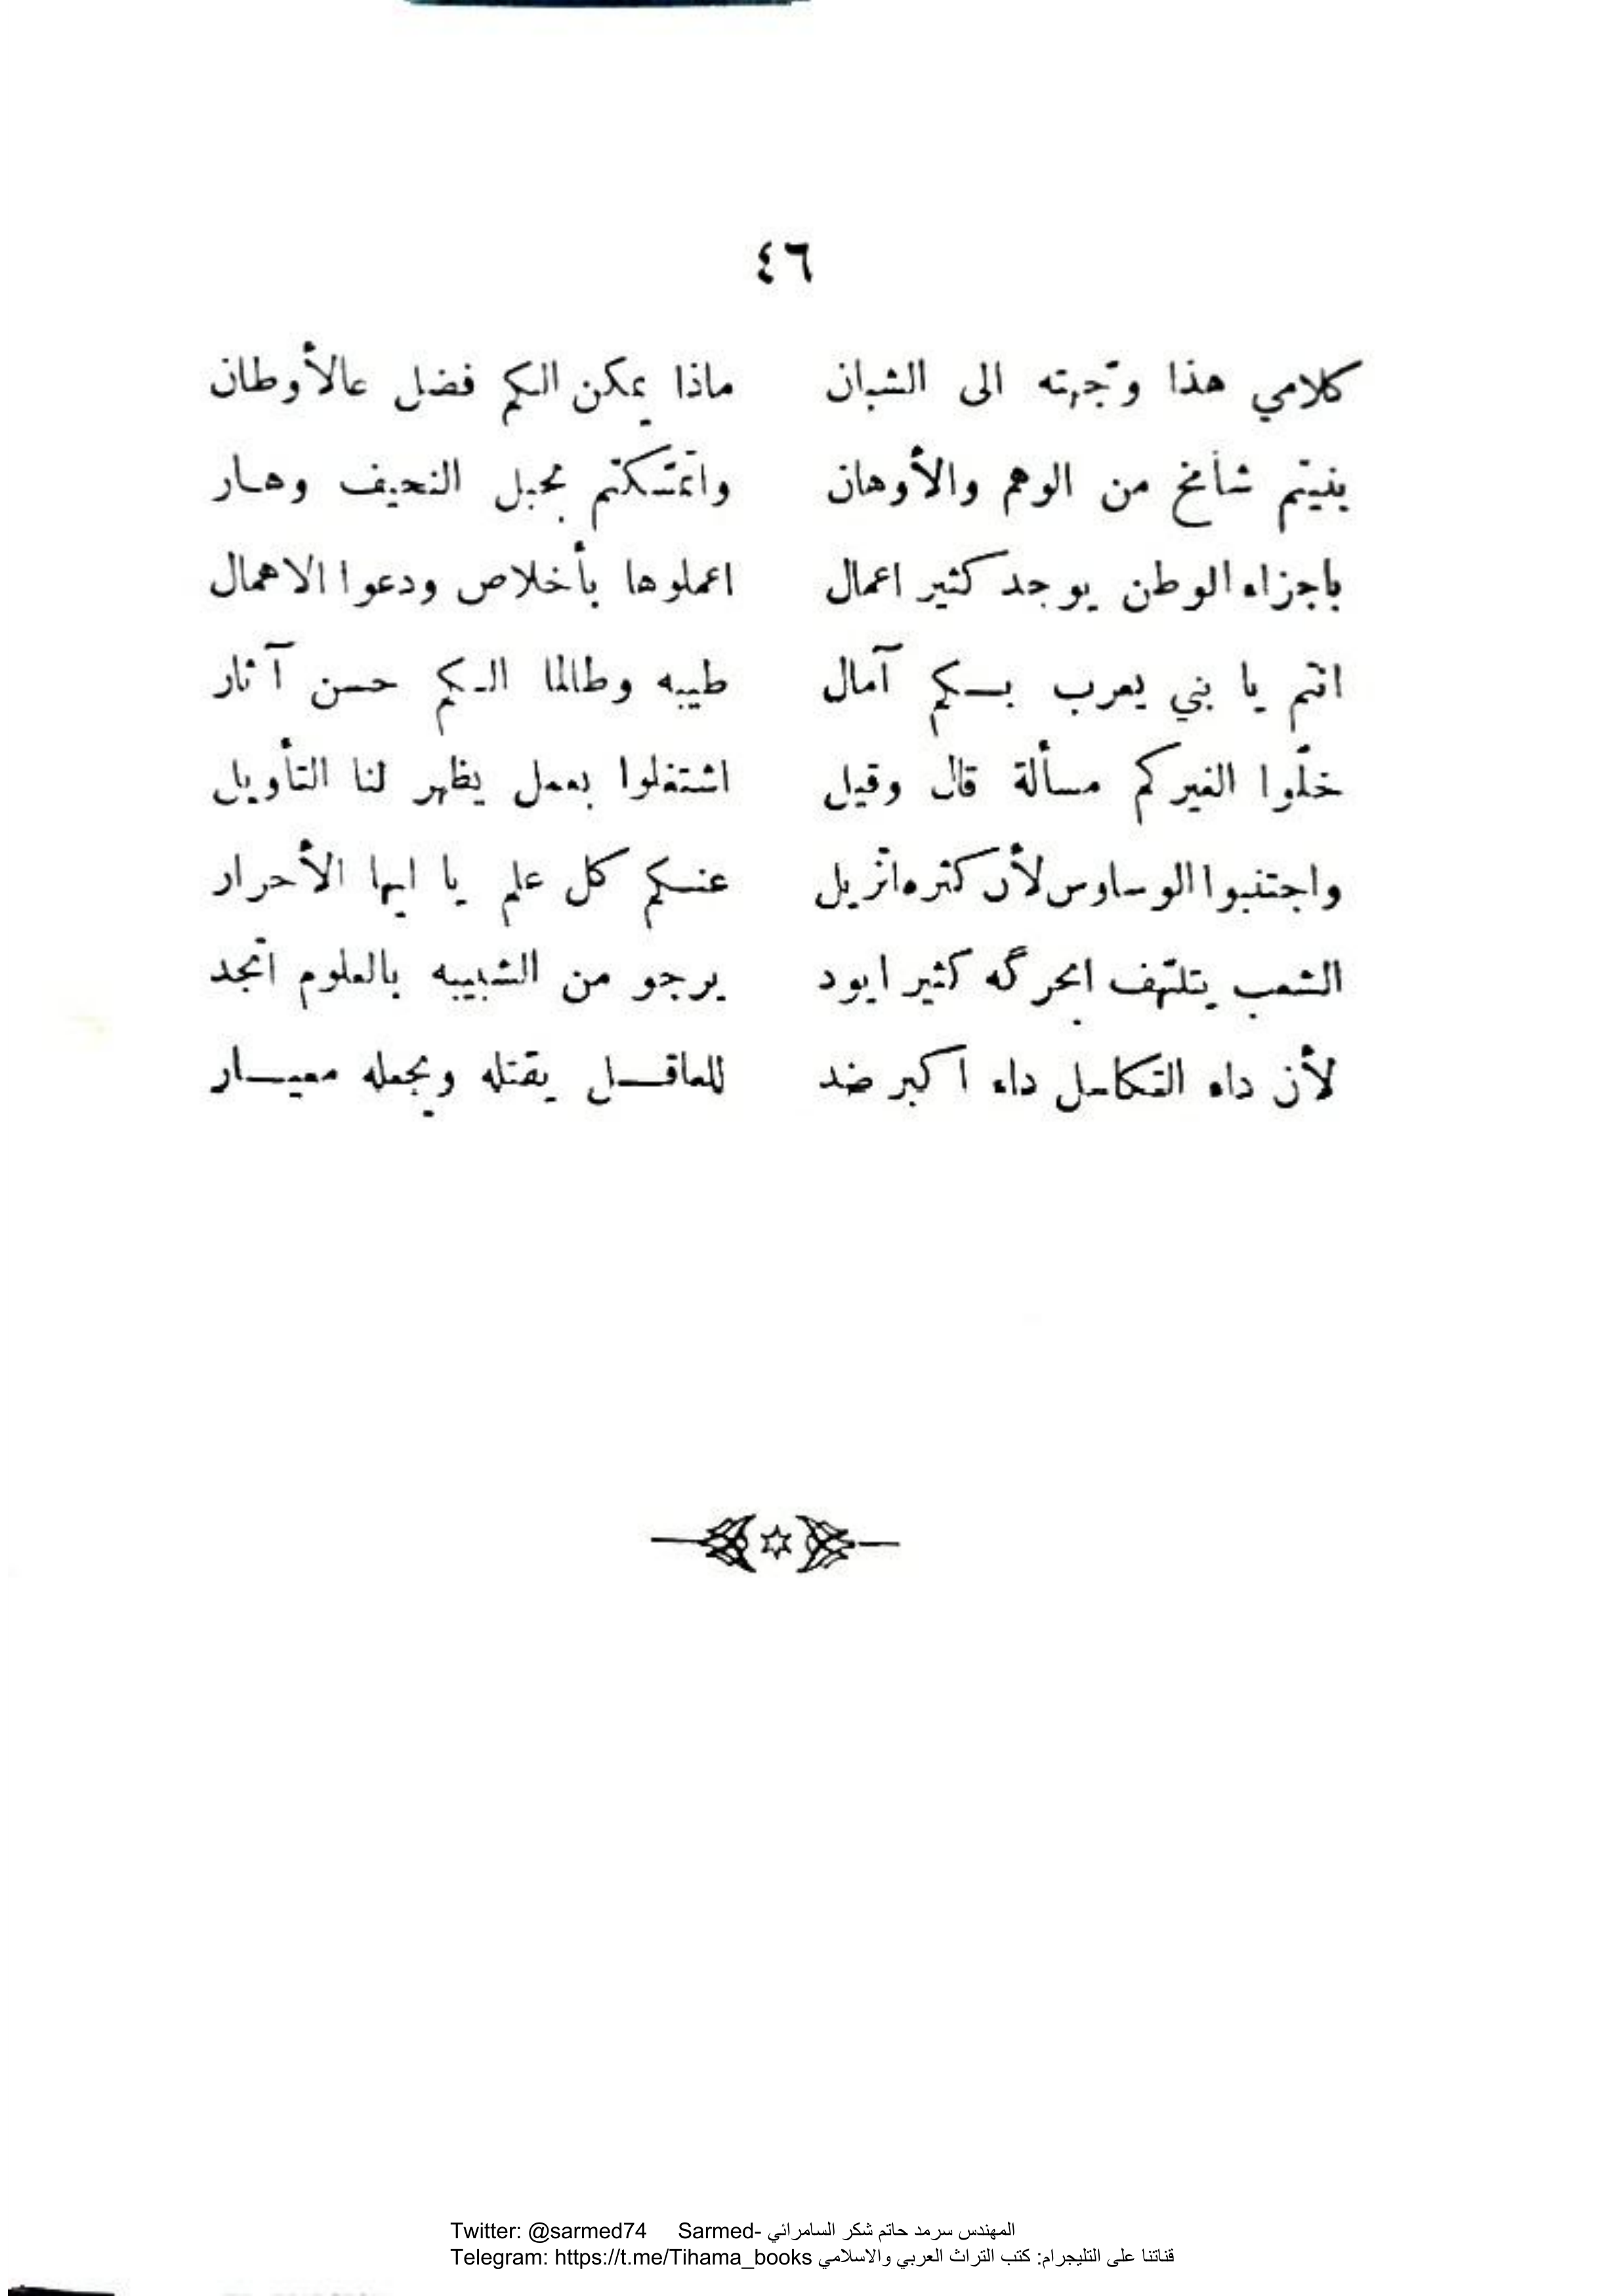 ٤٦
كلامي هذا وّجهته الى الشبان ماذا يمكن الكم فضل عالأوطان
بنيتم شأمخ من الوهم والأوهان واتمسّكتم بحبل النحيف وهار
باجزاء الوطن يوجد كثير اعمال اعملوها بأخلاص ودعوا الاهمال
انتم يا بني يعرب بسكم آمال طيبه وطالما الكم حسن آثار
خلّوا الغيركم مسألة قال وقيل اشتغلوا بعمل يظهر لنا التأويل
واجتنبوا الوساوس لأن كثره اتزيل عنكم كل علم يا ايها الأحرار
الشعب يتلهّف ابحرگه كثير ايود يرجو من الشبيبه بالعلوم اتجد
لأن داء التكاسل داء اكبر ضد للعاقل يقتله ويجعله معيار
Twitter: @sarmed74 Sarmed- المهندس سرمد حاتم شكر السامرائي
Telegram: https://t.me/Tihama_books قناتنا على التليجرام: كتب التراث العربي والاسلامي